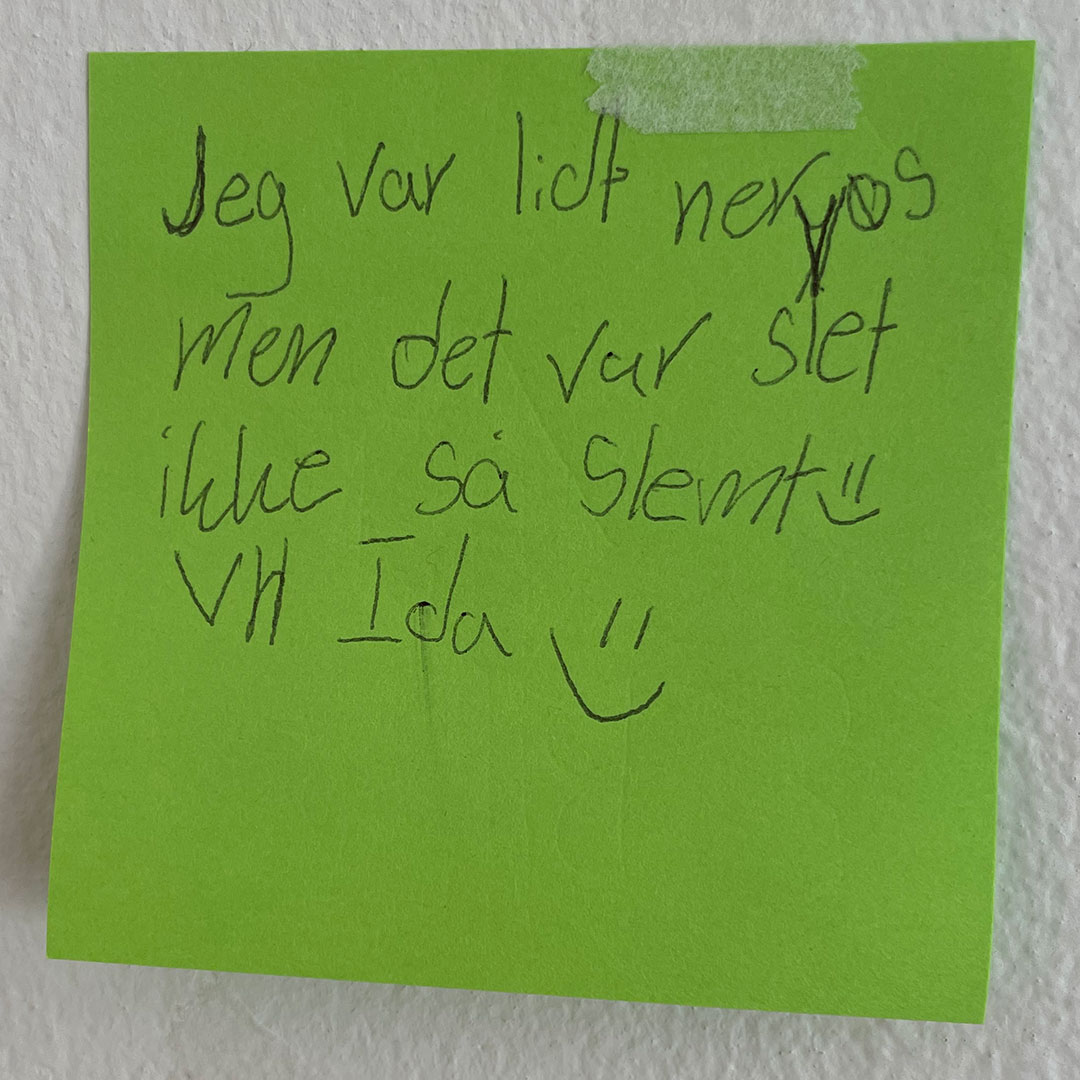 Jeg var lidt nervøs
men det var slet
ikke så slemt
VH Ida